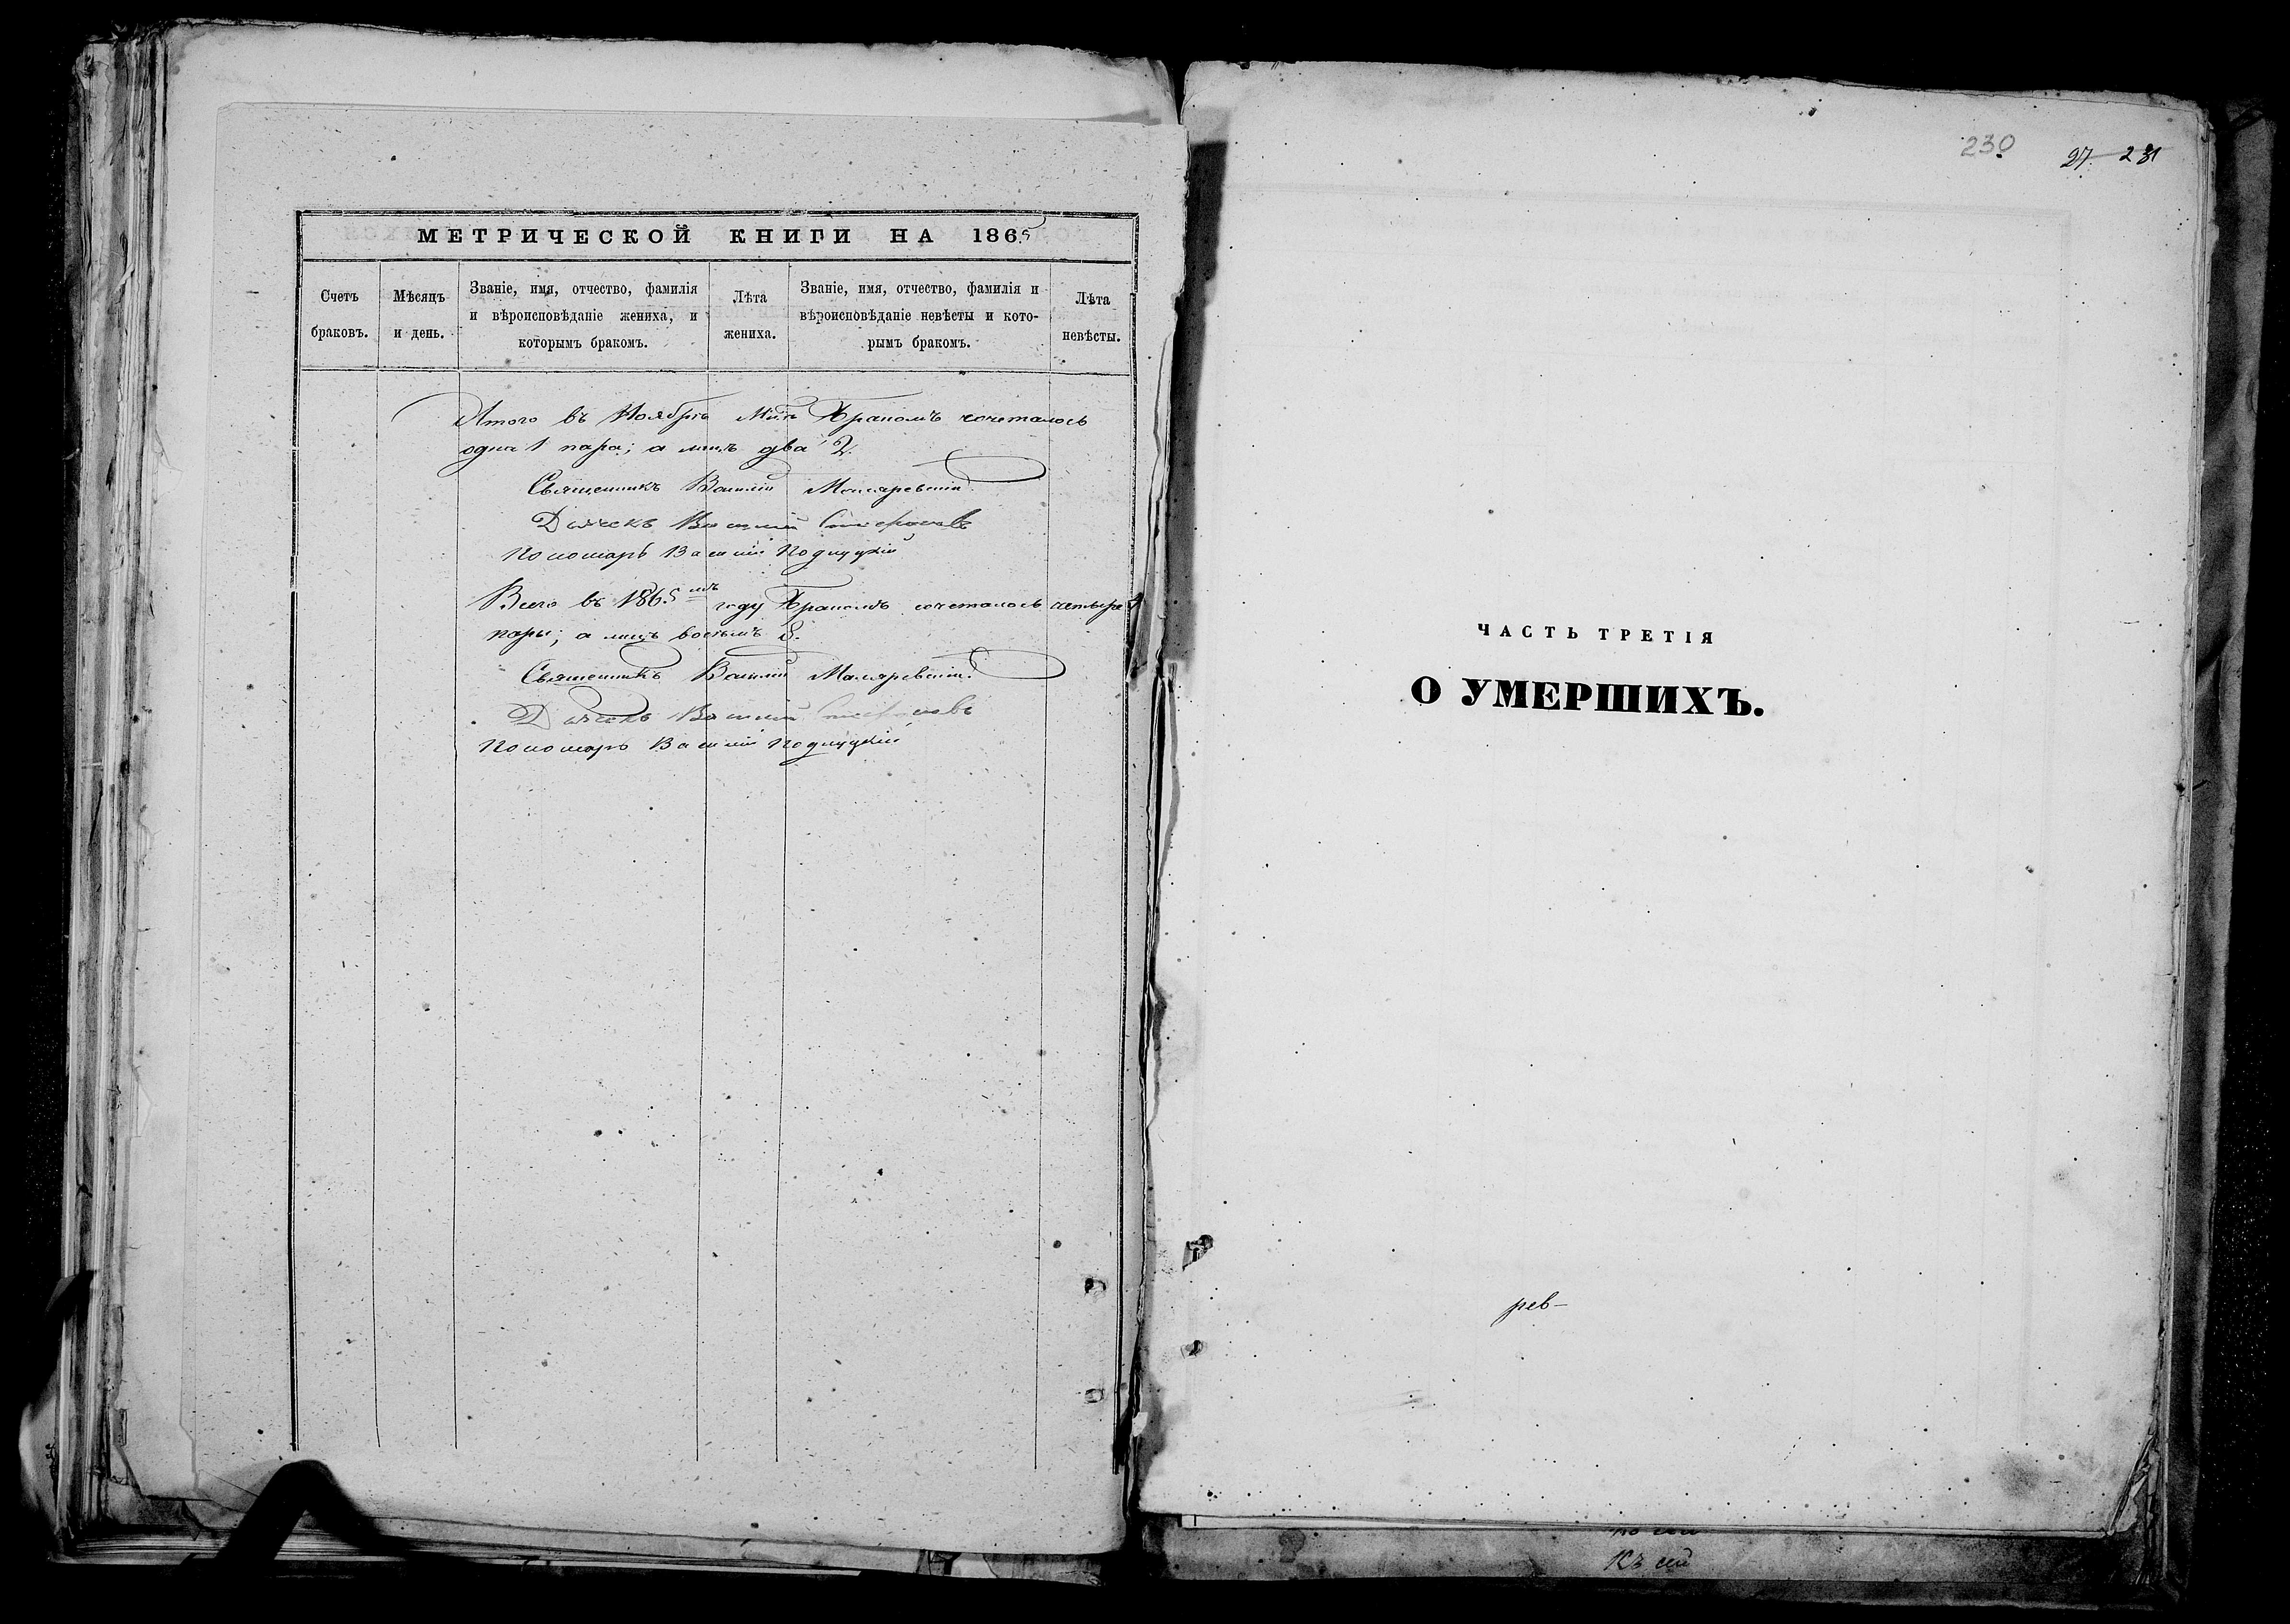 МЕТРИЧЕСКОЙ КНИГИ НА 1865
Счетъ браковъ.
Мѣсяцъ и день.
Званіе, имя, отчество, фамилія
и вѣроисповѣданіе жениха, и
которымъ бракомъ.
Лѣта жениха.
Званіе, имя, отчество, фамилія и
вѣроисповѣданіе невѣсты и кото-
рымъ бракомъ.
Лѣта невѣсты.
Итого въ Ноябрѣ Бракомъ сочеталось
одна 1 пара; а лицъ два 2.
Священникъ Василій Маляревскій
Дьячекъ Василій
Пономарь Василій
Всего въ 1865мъ году Бракомъ сочеталось четыре 4
пары; а лицъ восемь 8.
Священникъ Василій Маляревскій
Дьячекъ Василій
Пономарь Василій
230
27
231
ЧАСТЬ ТРЕТІЯ
О УМЕРШИХЪ.
рев-
Къ сей